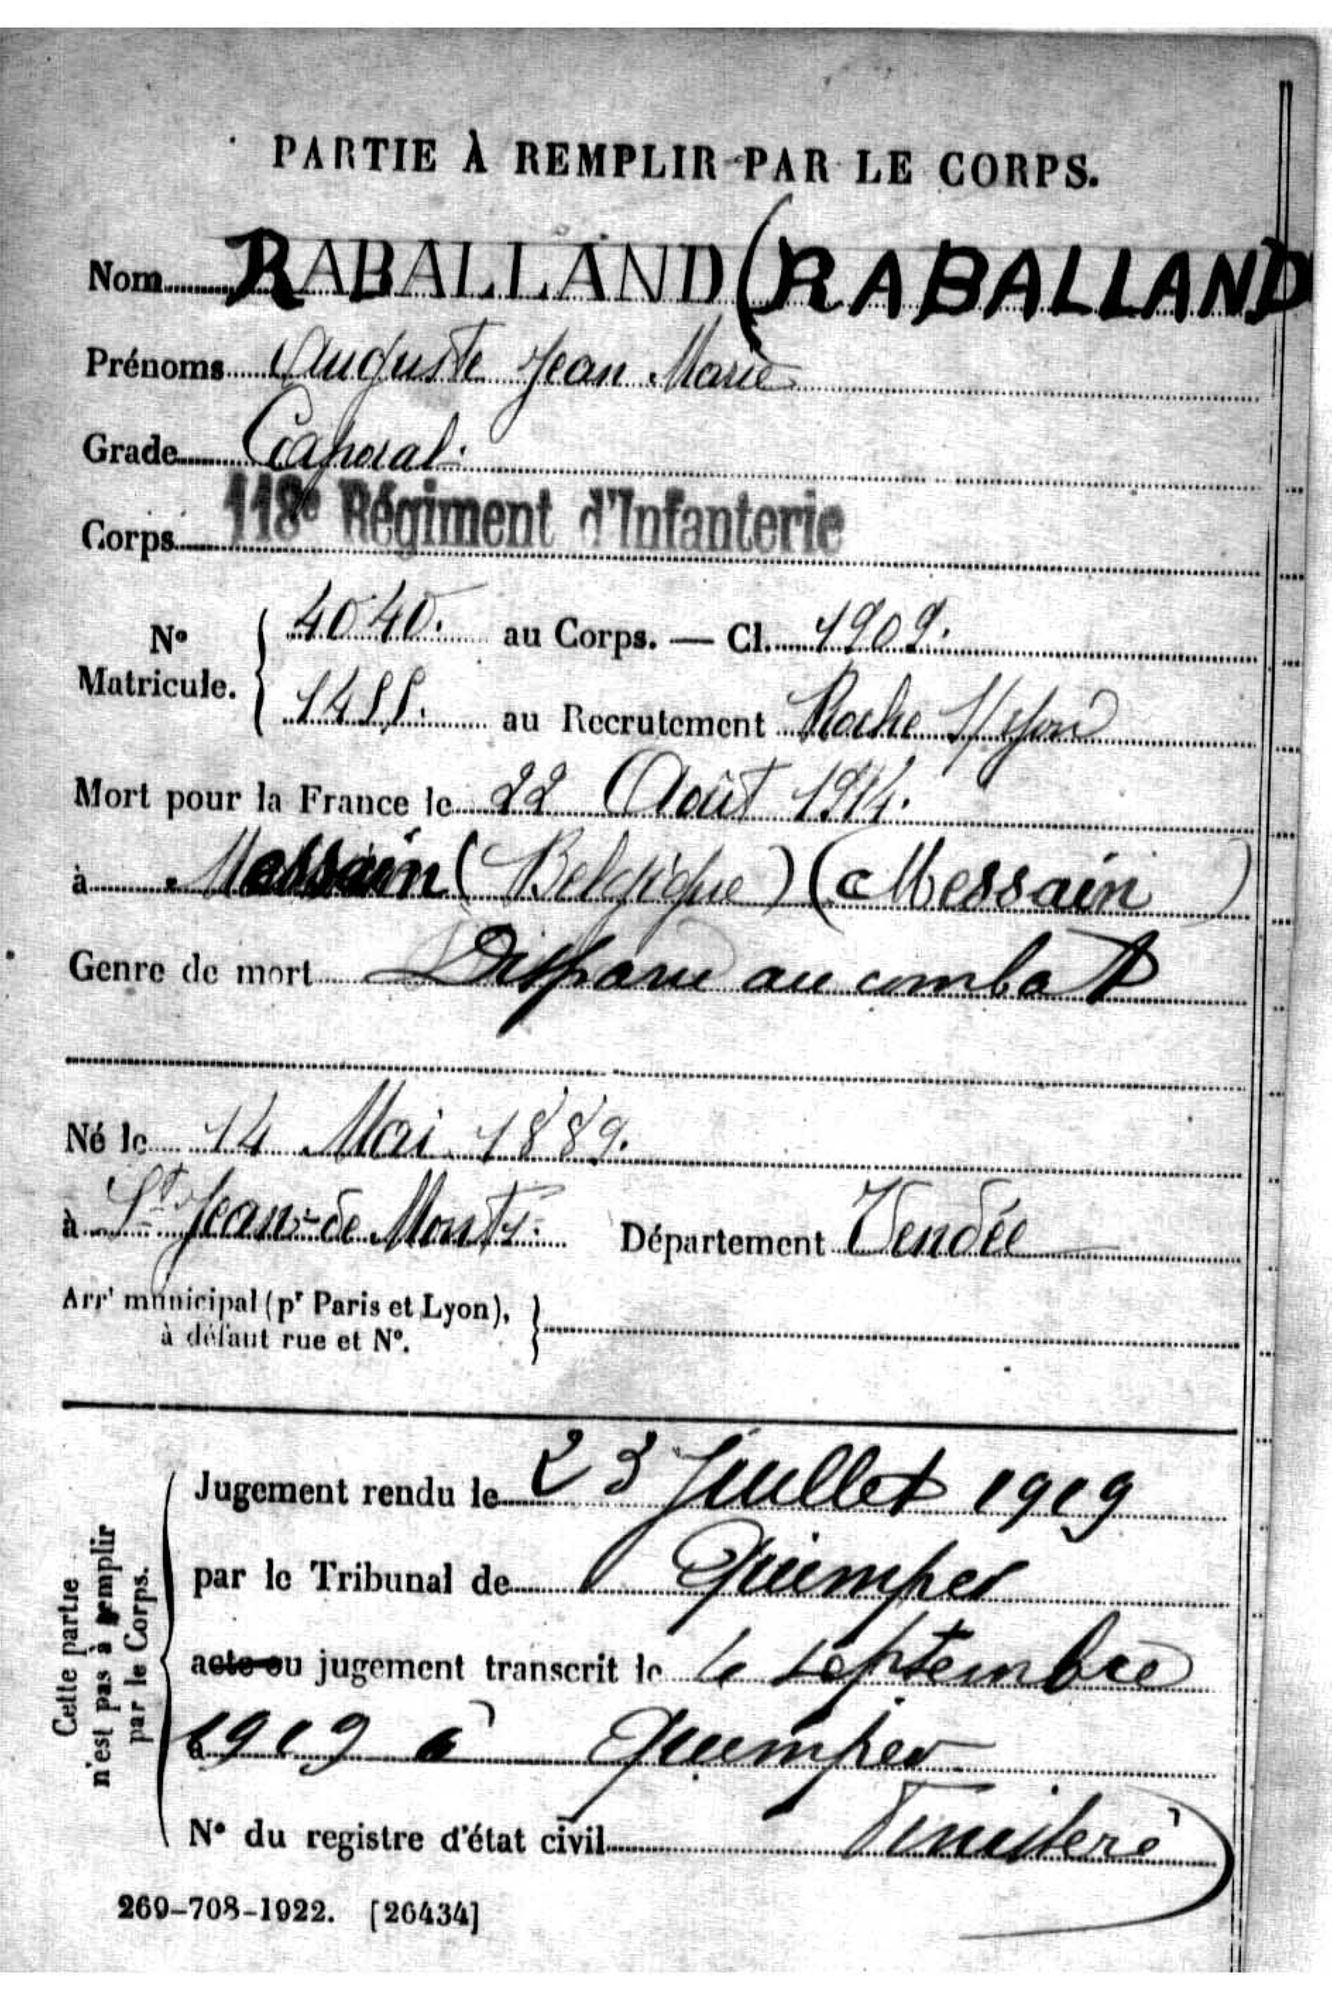 PARTIE À REMPLIR PAR LE CORPS.
Nom RABALLAND (RABALLAND
Prénoms Auguste Jean Marie
Grade Caporal.
Corps 118e Régiment d'Infanterie
N° Matricule. { 4040. au Corps. — Cl. 1909.
1488. au Recrutement Roche s/yon
Mort pour la France le 22 Août 1914.
à Messain (Belgique) (Messain)
Genre de mort Disparu au combat
Né le 14 Mai 1889.
à St Jean-de Monts. Département Vendée
Arrt municipal (pr Paris et Lyon), }
à défaut rue et N°.
Cette partie
n'est pas à remplir
par le Corps.
Jugement rendu le 23 Juillet 1919
par le Tribunal de Quimper
acte ou jugement transcrit le 4 septembre
1919 à Quimper
N° du registre d'état civil Finistère
269-708-1922. [26434]